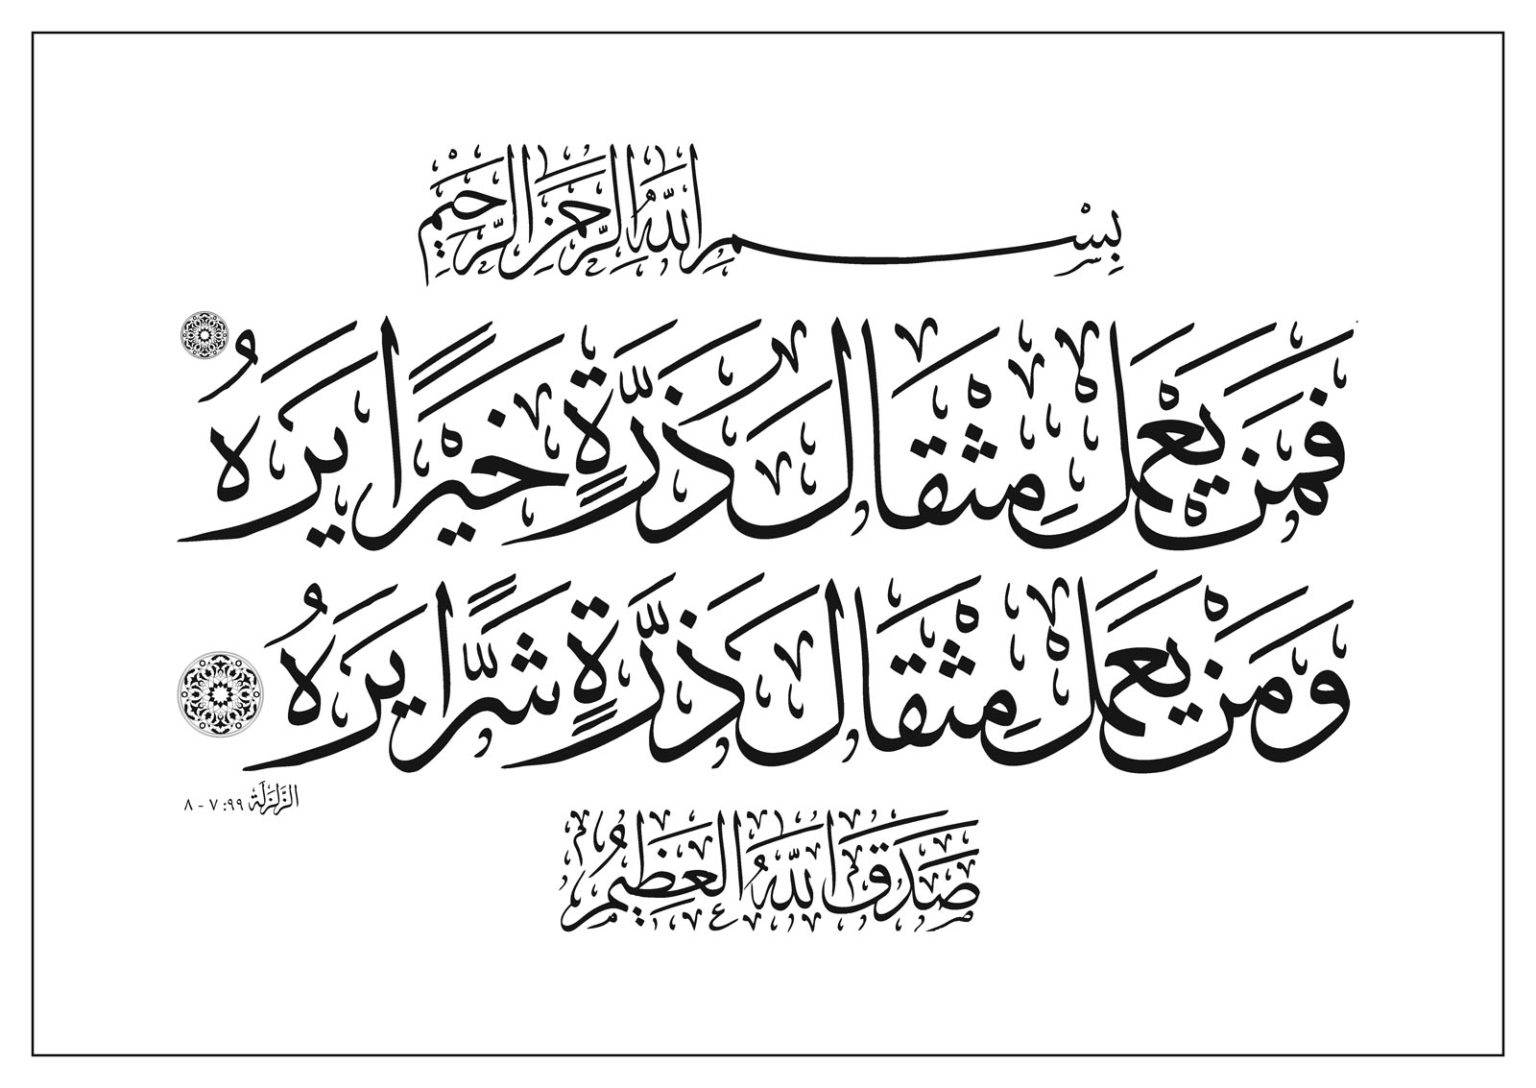 بِسْمِ اللَّهِ الرَّحْمَنِ الرَّحِيمِ
فَمَن يَعْمَلْ مِثْقَالَ ذَرَّةٍ خَيْرًا يَرَهُ
وَمَنْ يَعْمَلْ مِثْقَالَ ذَرَّةٍ شَرًّا يَرَهُ
الزَّلْزَلَة ٩٩: ٧ - ٨
صَدَقَ اللَّهُ الْعَظِيمُ